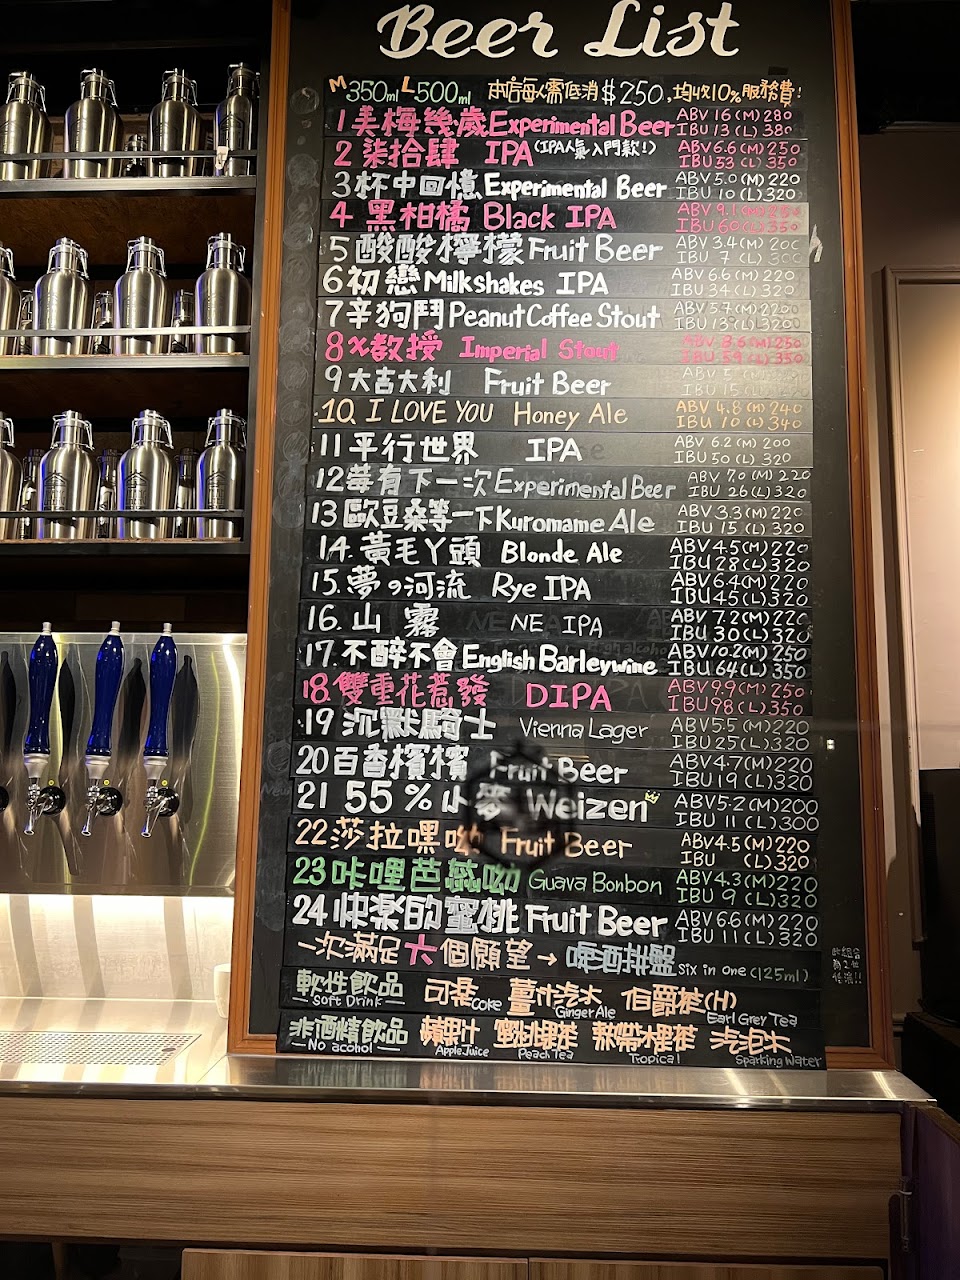 Beer List
M350ml L500ml 本店每人需低消$250,均收10%服務費!
1 美梅幾歲 Experimental Beer ABV 16 (M) 280
IBU 13 (L) 380
2 柒拾肆 IPA (IPA人氣入門款!) ABV 6.6 (M) 250
IBU 53 (L) 350
3 杯中回憶 Experimental Beer ABV 5.0 (M) 220
IBU 10 (L) 320
4 黑柑橘 Black IPA ABV 9.1 (M) 250
IBU 60 (L) 350
5 酸酸檸檬 Fruit Beer ABV 3.4 (M) 200
IBU 7 (L) 300
6 初戀 Milkshakes IPA ABV 6.6 (M) 220
IBU 34 (L) 320
7 辛狗鬥 Peanut Coffee Stout ABV 5.7 (M) 220
IBU 13 (L) 320
8 X教授 Imperial Stout ABV 8.6 (M) 250
IBU 59 (L) 350
9 大吉大利 Fruit Beer ABV
IBU 15 (L)
10. I LOVE YOU Honey Ale ABV 4.8 (M) 240
IBU 10 (L) 340
11 平行世界 IPA ABV 6.2 (M) 200
IBU 50 (L) 320
12 莓有下一次 Experimental Beer ABV 7.0 (M) 220
IBU 26 (L) 320
13 歐豆桑等一下 Kuromame Ale ABV 3.3 (M) 220
IBU 15 (L) 320
14. 黃毛丫頭 Blonde Ale ABV 4.5 (M) 220
IBU 28 (L) 320
15. 夢の河流 Rye IPA ABV 6.4 (M) 220
IBU 45 (L) 320
16. 山霧 NE IPA ABV 7.2 (M) 220
IBU 30 (L) 320
17. 不醉不會 English Barleywine ABV 10.2 (M) 250
IBU 64 (L) 350
18. 雙重花惹發 DIPA ABV 9.9 (M) 250
IBU 98 (L) 350
19 沉默騎士 Vienna Lager ABV 5.5 (M) 220
IBU 25 (L) 320
20 百香檳檳 Fruit Beer ABV 4.7 (M) 220
IBU 19 (L) 320
21 55%小麥 Weizen ABV 5.2 (M) 200
IBU 11 (L) 300
22 莎拉嘿呦 Fruit Beer ABV 4.5 (M) 220
IBU (L) 320
23 咔哩芭蕊呦 Guava Bonbon ABV 4.3 (M) 220
IBU 9 (L) 320
24 快樂的蜜桃 Fruit Beer ABV 6.6 (M) 220
IBU 11 (L) 320
一次滿足六個願望→ 啤酒拼盤 Six in one (125ml)
軟性飲品 可樂 薑汁汽水 伯爵茶(H)
Soft Drink Coke Ginger Ale Earl Grey Tea
非酒精飲品 蘋果汁 蜜桃果茶 熱帶水果茶 汽泡水
No acohol Apple Juice Peach Tea Tropical Sparking Water